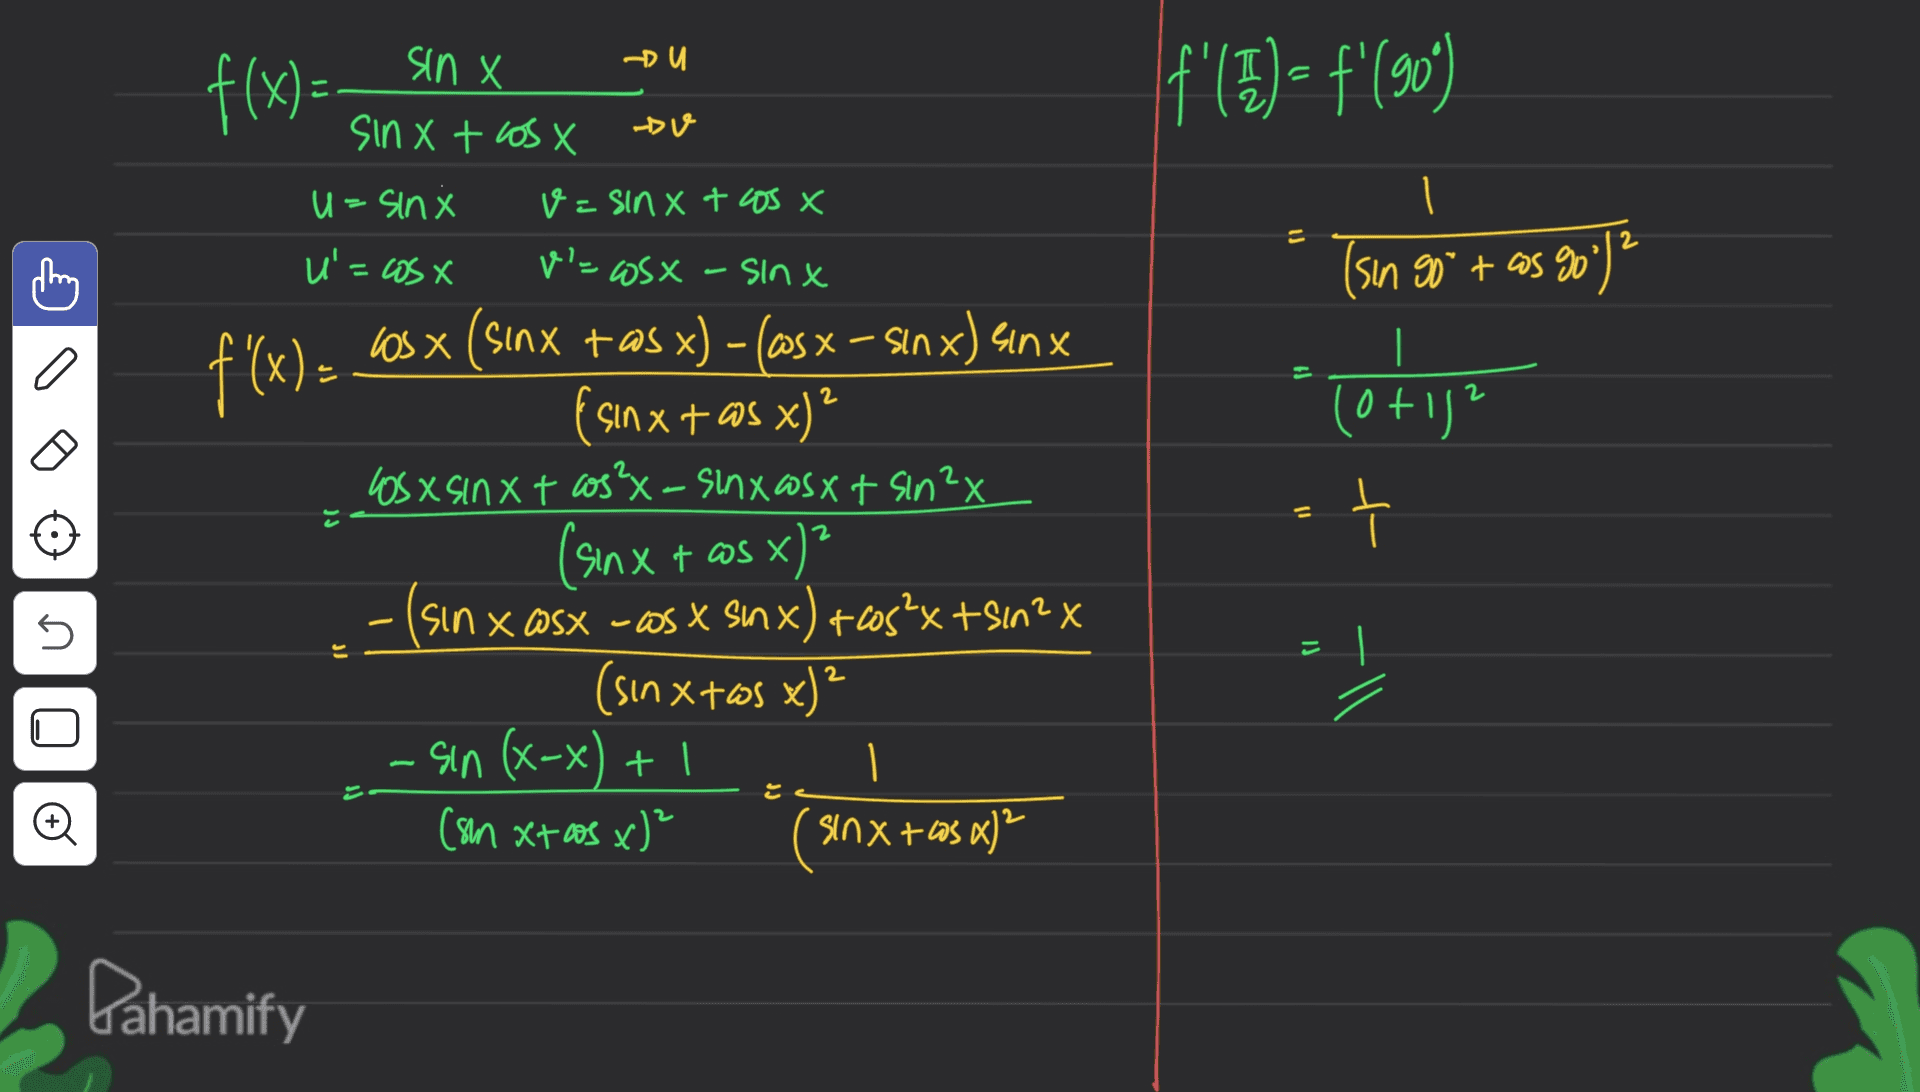 f(x) = sin x / (sin x + cos x) → u → v
u = sin x    v = sin x + cos x
u' = cos x    v' = cos x - sin x
f'(x) = (cos x (sin x + cos x) - (cos x - sin x) sin x) / (sin x + cos x)²
= (cos x sin x + cos² x - sin x cos x + sin² x) / (sin x + cos x)²
= (-(sin x cos x - cos x sin x) + cos² x + sin² x) / (sin x + cos x)²
= (- sin (x-x) + 1) / (sin x + cos x)² = 1 / (sin x + cos x)²
f'(π/2) = f'(90°)
= 1 / (sin 90° + cos 90°)²
= 1 / (0 + 1)²
= 1/1
= 1
Pahamify